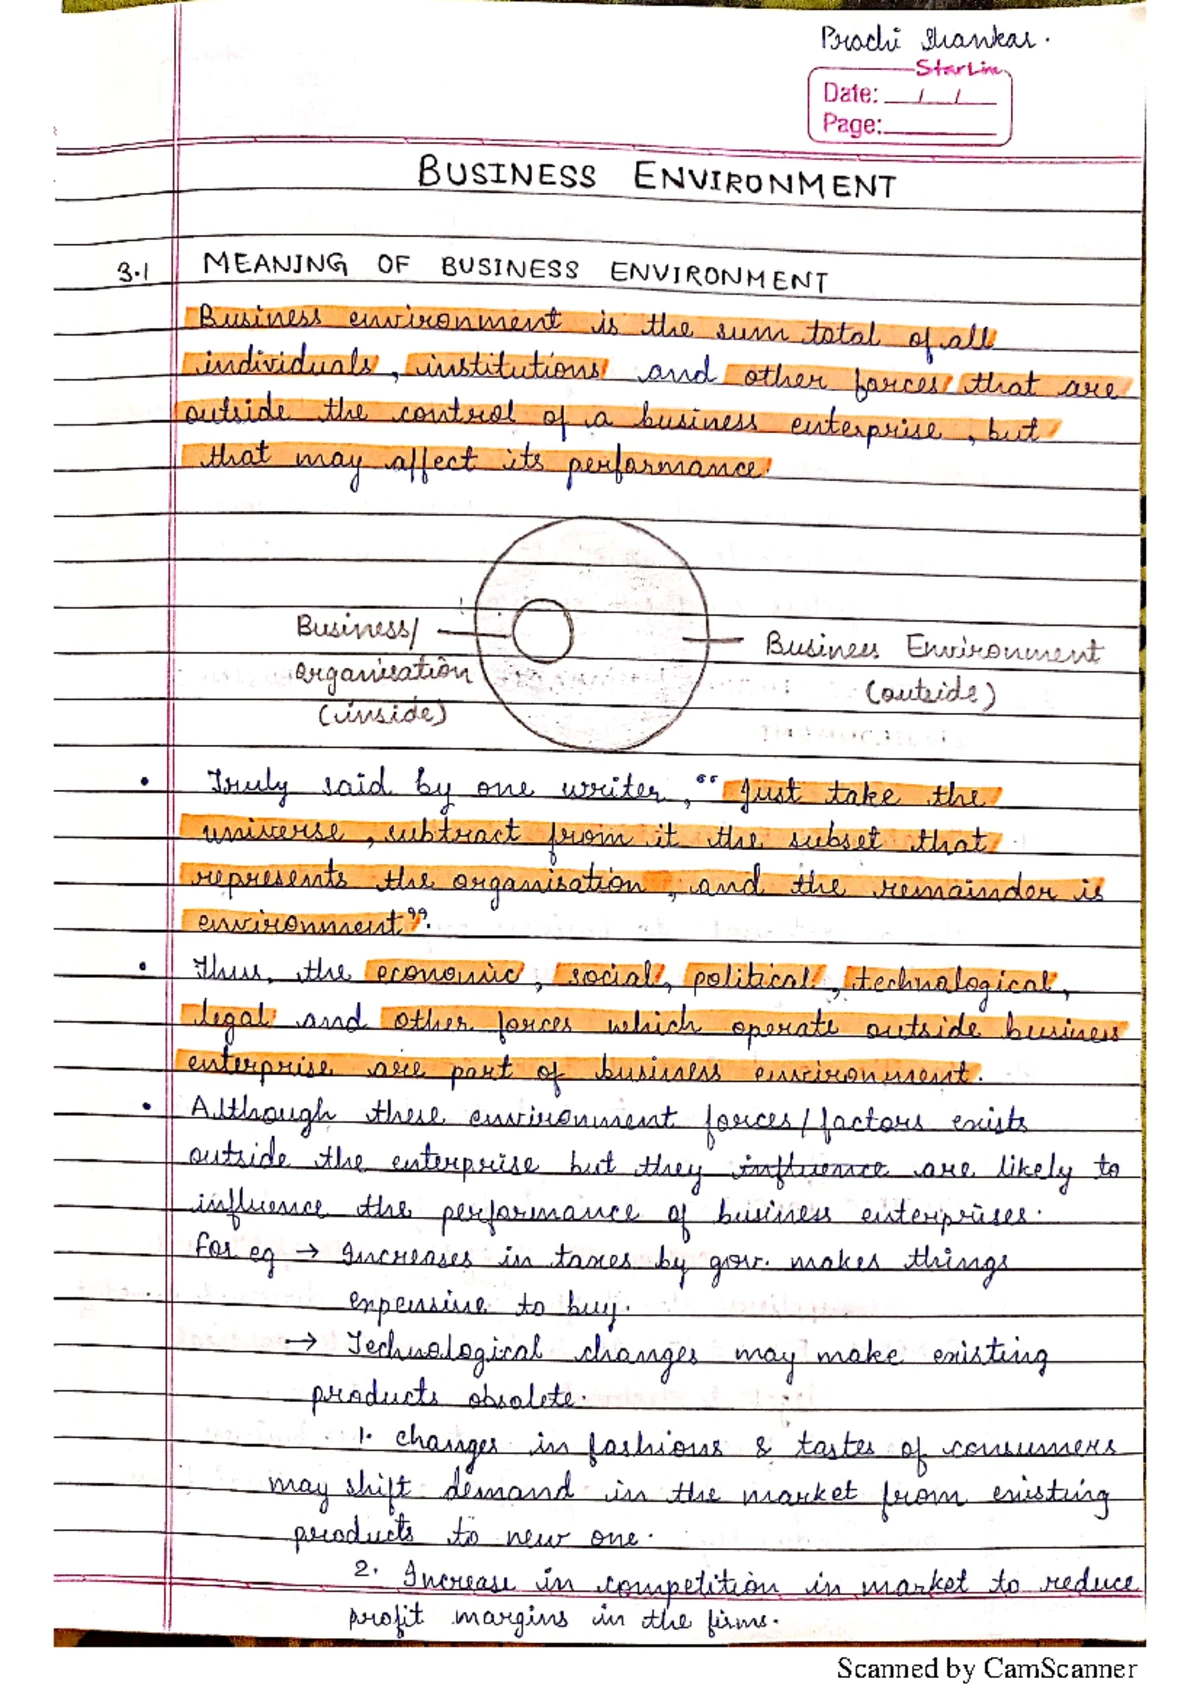 Prachi Shankar.
StarLine
Date: / /
Page:
BUSINESS ENVIRONMENT
3.1 MEANING OF BUSINESS ENVIRONMENT
Business environment is the sum total of all
individuals, institutions and other forces that are
outside the control of a business enterprise, but
that may affect its performance.
Business/
organisation
(inside)
Business Environment
(outside)
• Truly said by one writer, "Just take the
universe, subtract from it the subset that
represents the organisation, and the remainder is
environment".
• Thus, the economic, social, political, technological,
legal and other forces which operate outside business
enterprise are part of business environment.
• Although these environment forces/factors exists
outside the enterprise but they influence are likely to
influence the performance of business enterprises.
For eg → Increases in taxes by gov. makes things
expensive to buy.
→ Technological changes may make existing
products obsolete.
1. Changes in fashions & tastes of consumers
may shift demand in the market from existing
products to new one.
2. Increase in competition in market to reduce
profit margins in the firms.
Scanned by CamScanner